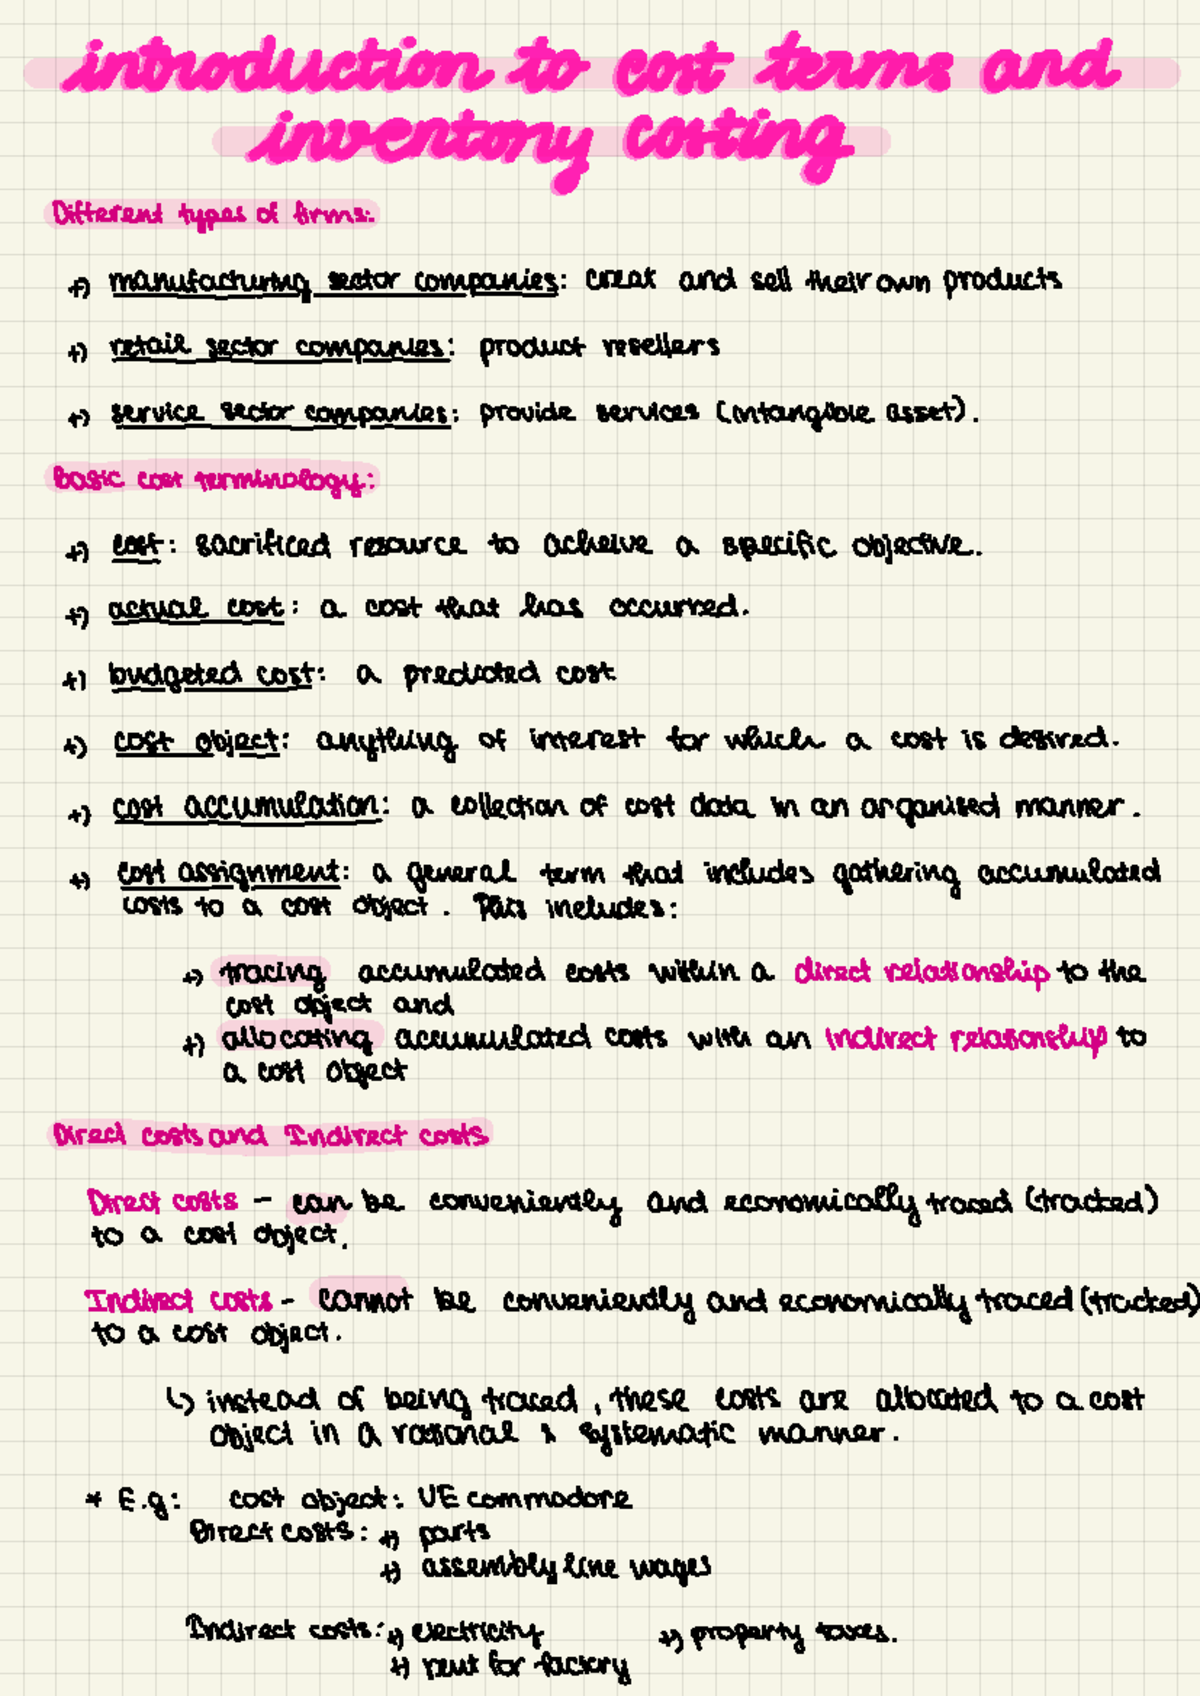 introduction to cost terms and
inventory costing
Different types of firms:
→ manufacturing sector companies: creat and sell their own products
→ retail sector companies: product resellers
→ service sector companies: provide services (intangible asset).
Basic cost terminology:
→ cost: sacrificed resource to acheive a specific objective.
→ actual cost: a cost that has occurred.
→ budgeted cost: a predicted cost
→ cost object: anything of interest for which a cost is desired.
→ cost accumulation: a collection of cost data in an organised manner.
→ cost assignment: a general term that includes gathering accumulated
costs to a cost object. This includes:
→ tracing accumulated costs within a direct relationship to the
cost object and
→ allocating accumulated costs with an indirect relationship to
a cost object
Direct costs and Indirect costs
Direct costs - can be conveniently and economically traced (tracked)
to a cost object.
Indirect costs - cannot be conveniently and economically traced (tracked)
to a cost object.
↳ instead of being traced, these costs are allocated to a cost
object in a rational & systematic manner.
* E.g: cost object: VE commodore
Direct costs: → parts
→ assembly line wages
Indirect costs: → electricity → property taxes.
→ rent for factory